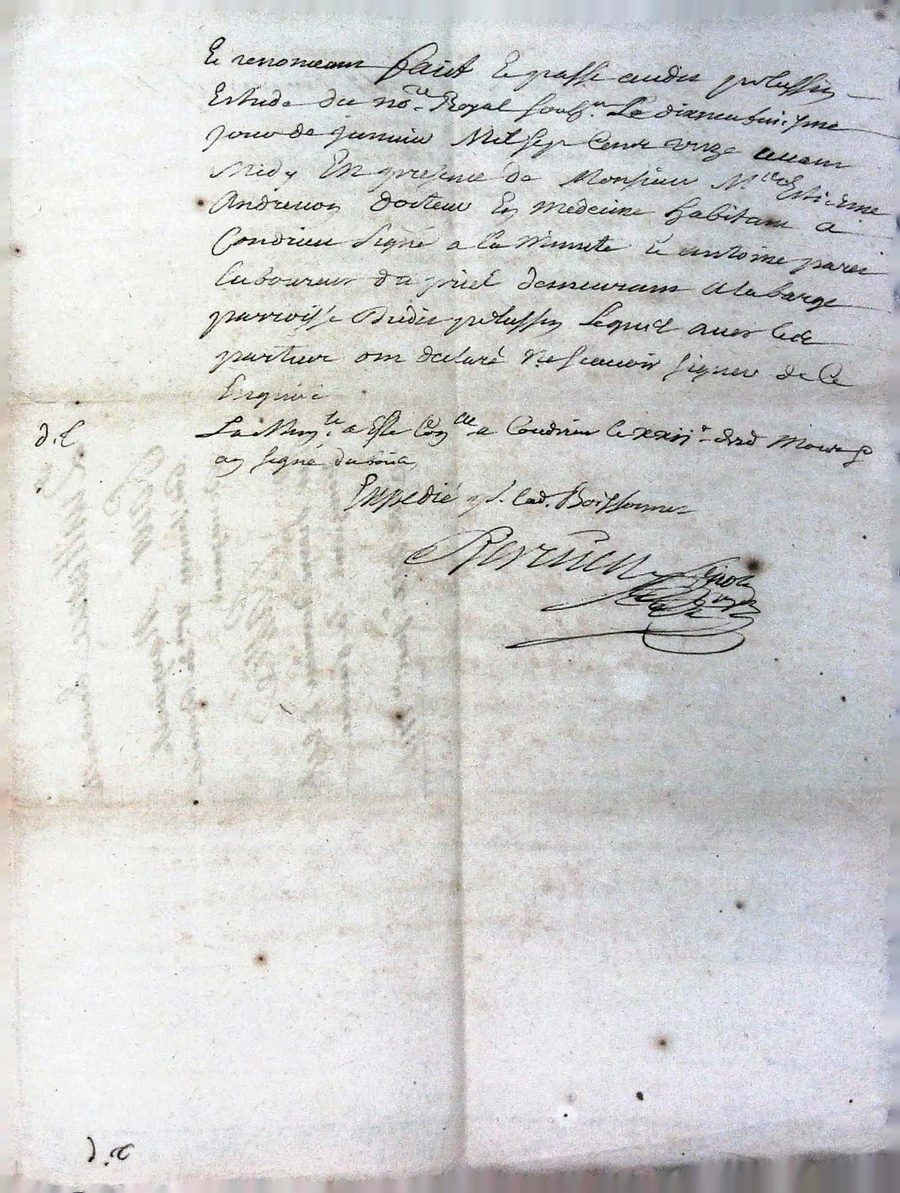 Et renonceans fait et passé audit pelussin
Estude du no.re Royal soubs.né Le dixneufviesme
jour de janvier Mil sept cent unze avant
Midy En presence de Monsieur M.e Estienne
Andrevon docteur En medecine habitant a
Condrieu signé a la Minute et antoine paret
laboureur du priel demeurant a la barge
parroisse dudit pelussin Lequel avec les
parties ont declaré ne scavoir signer de ce
Enquis
d. L
La Min.te a esté con.lée a Condrieu le xxii.e dud Mois
signé
Expedié Boissonnet
d. L